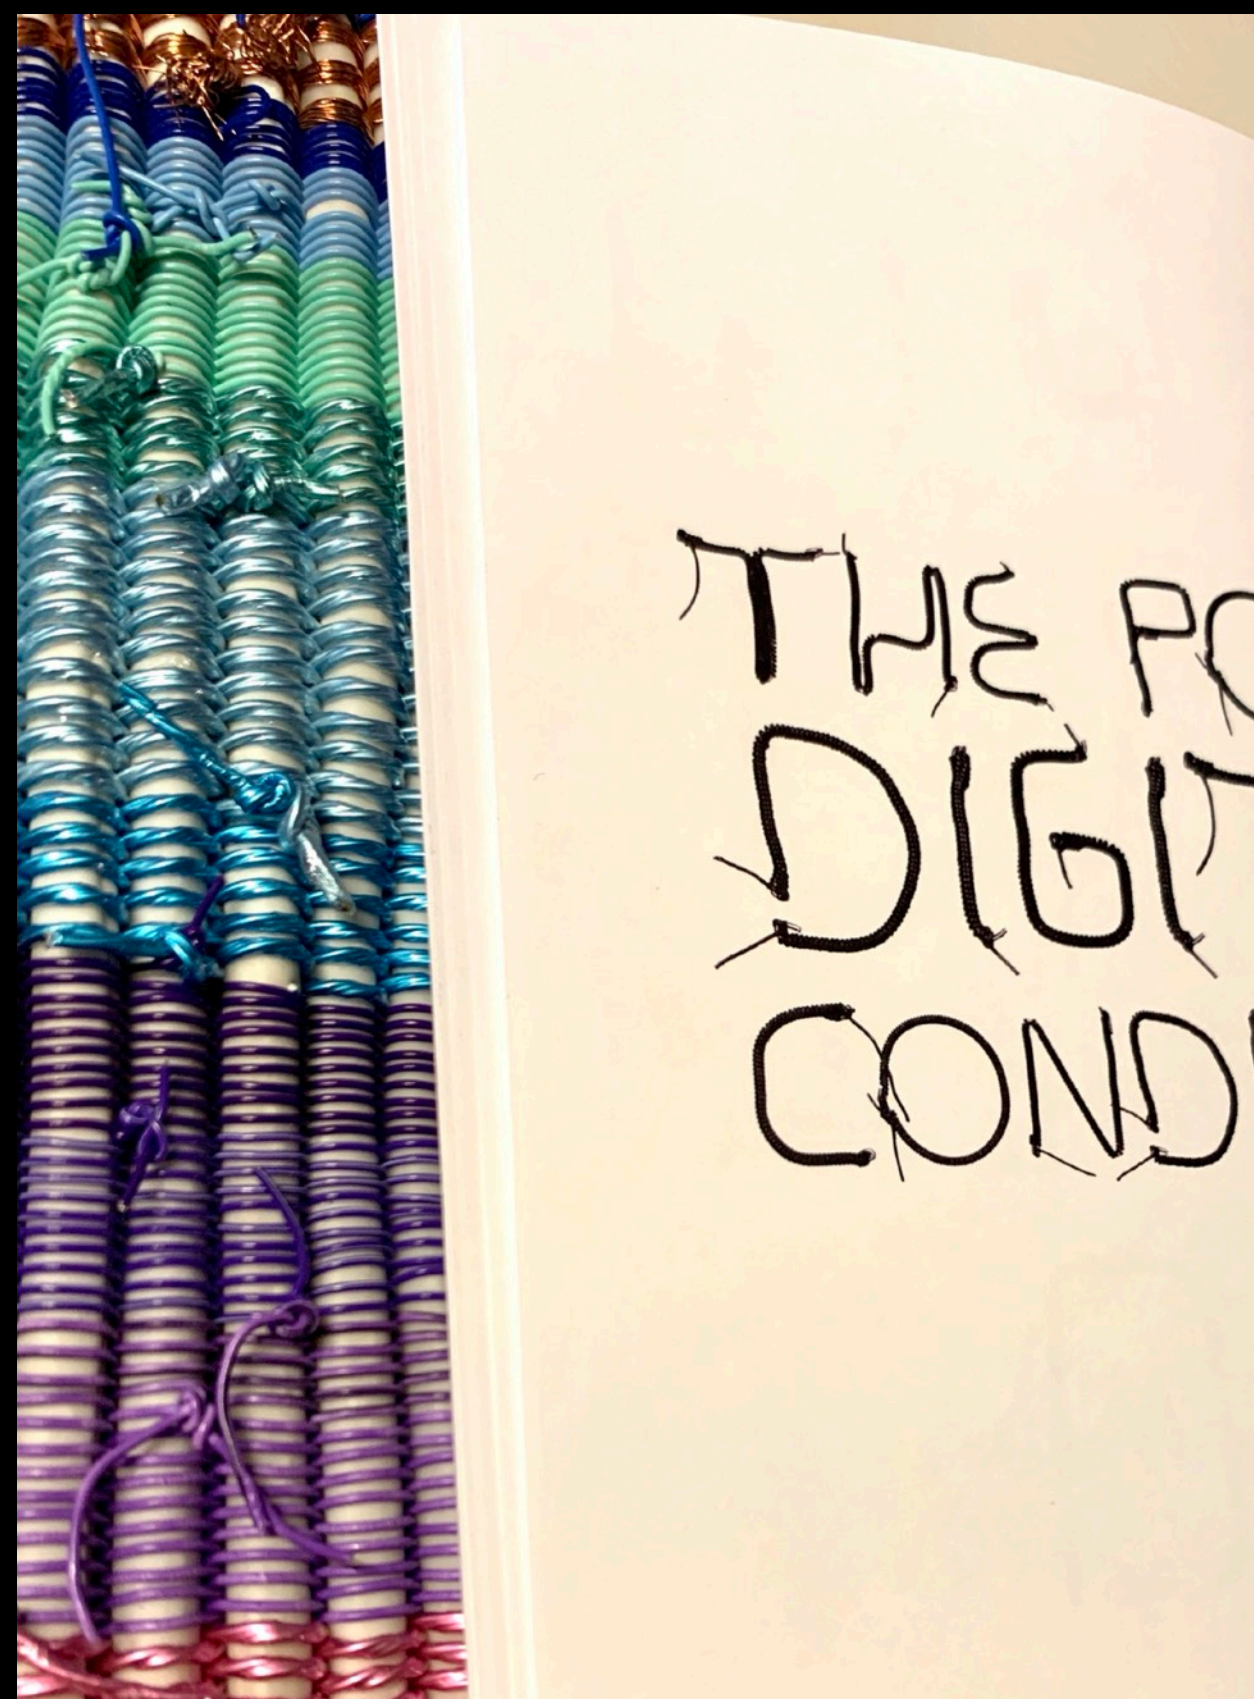 THE PO
DIGIT
COND